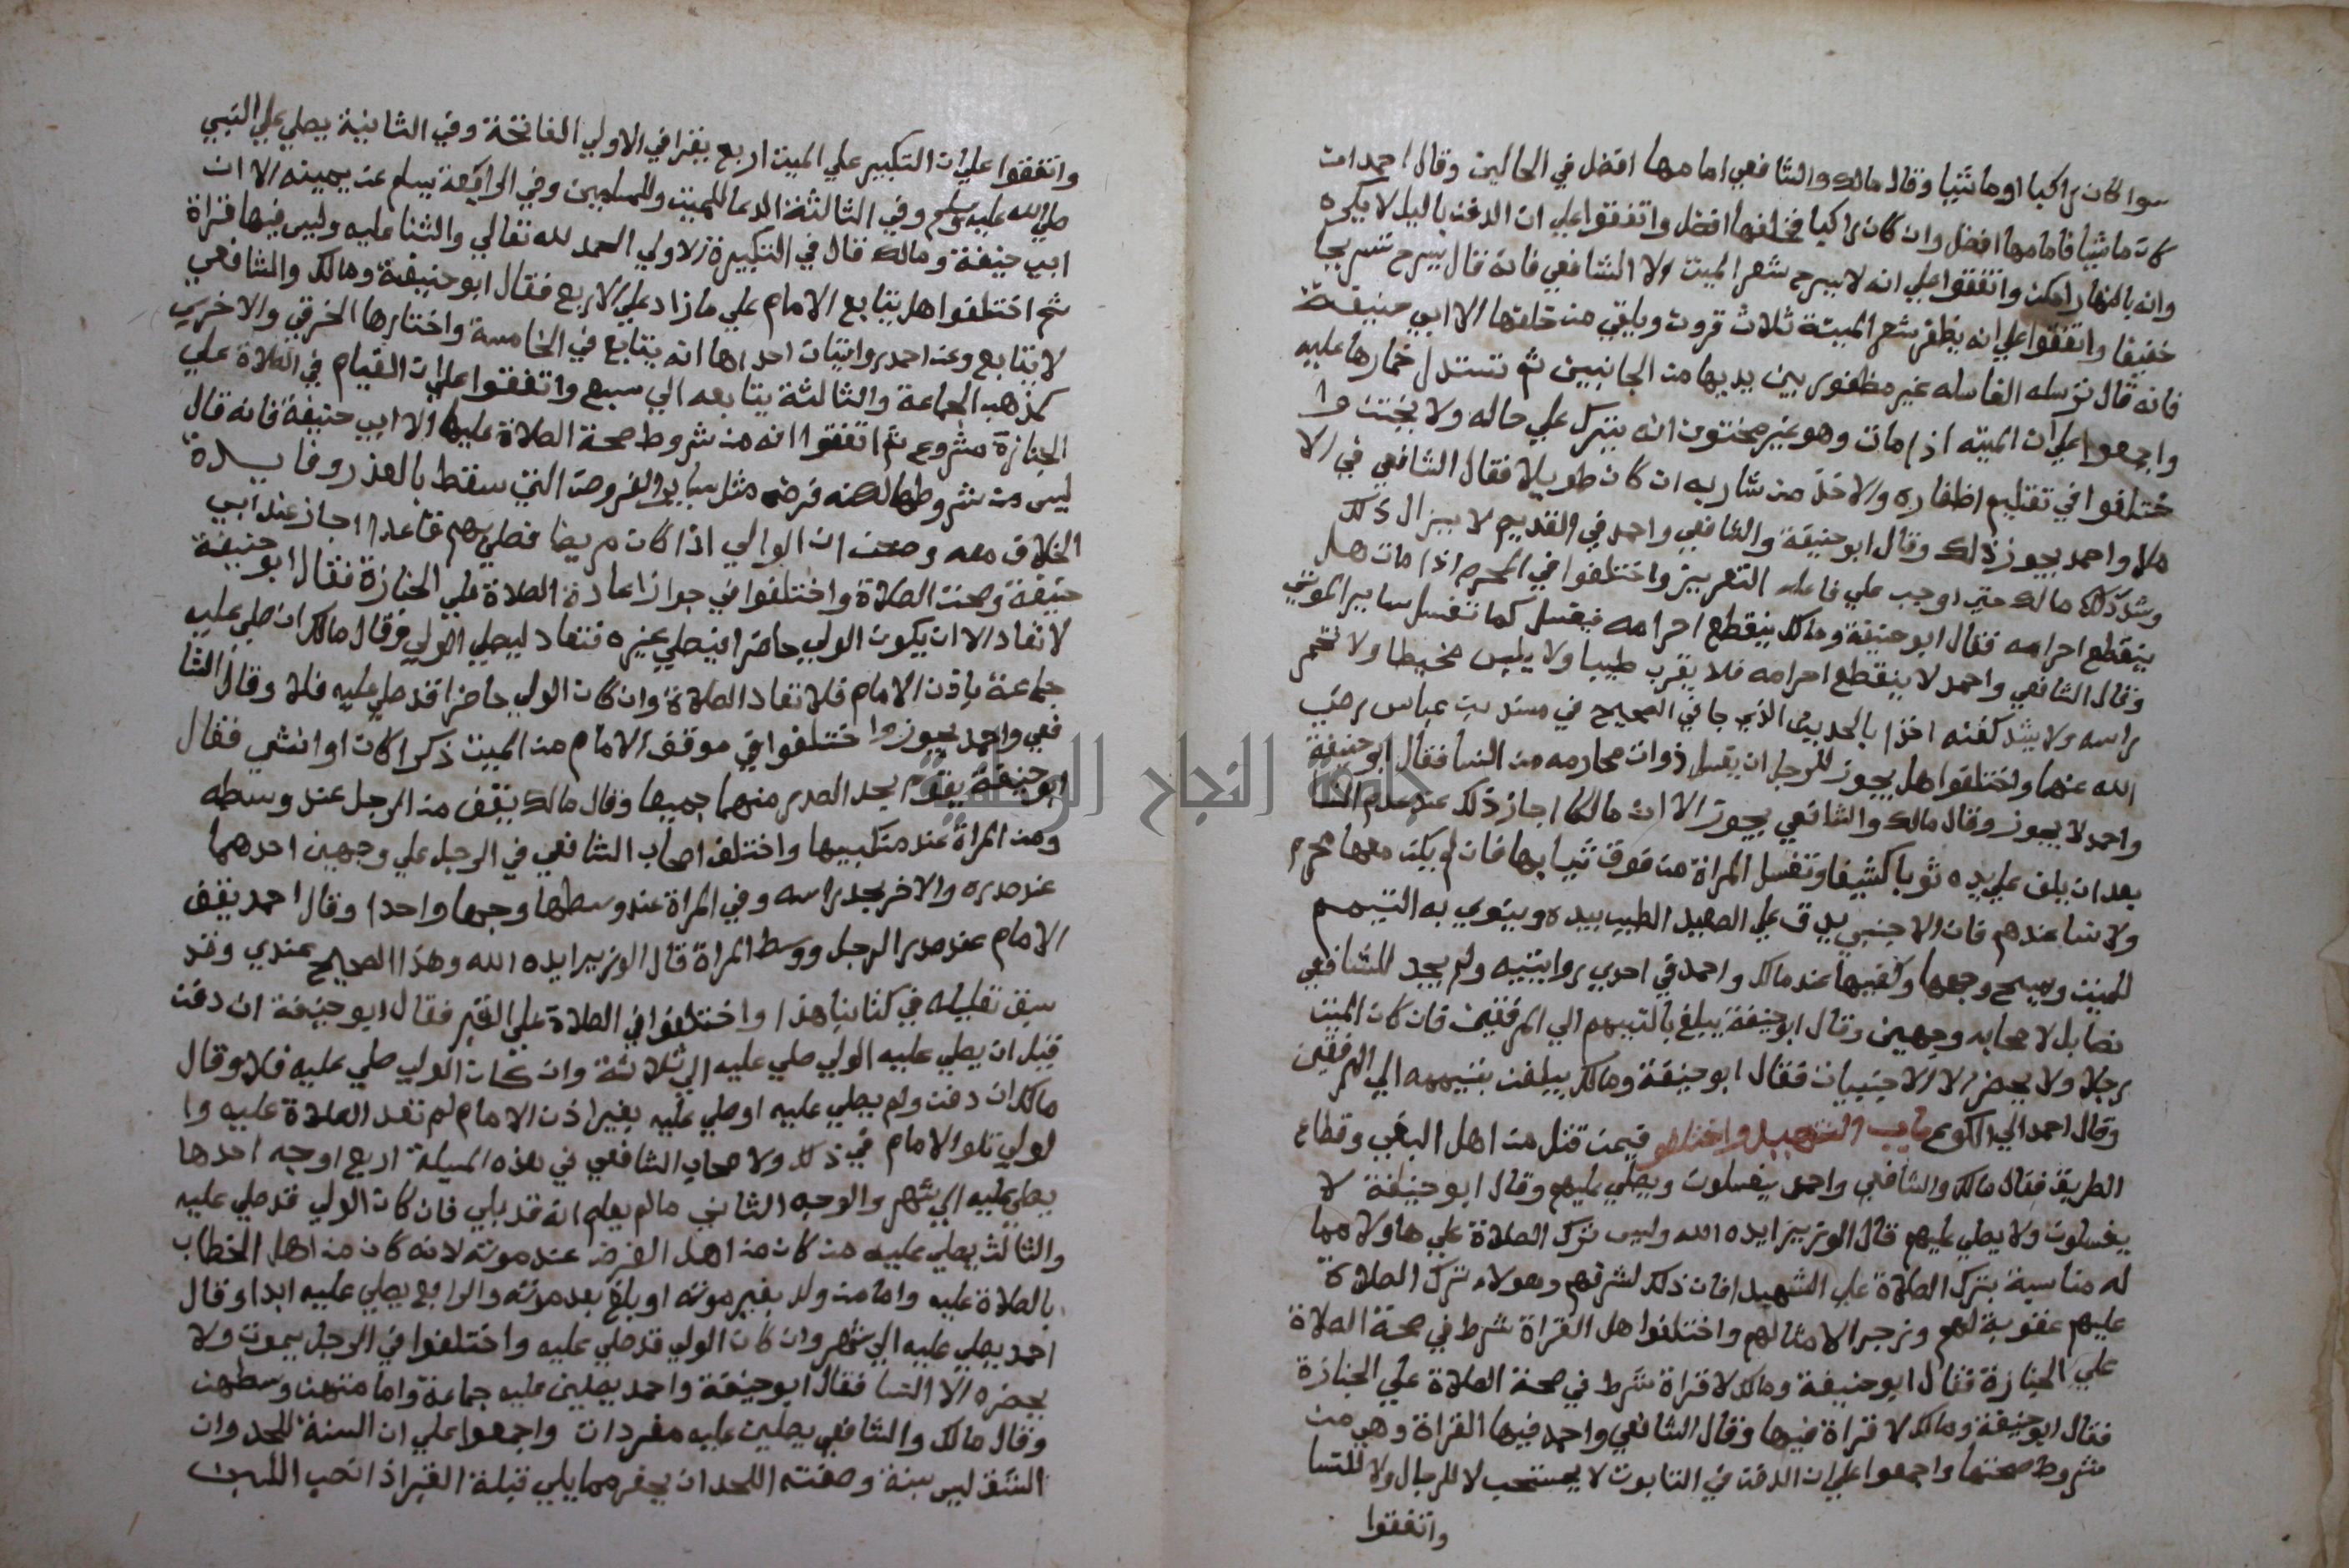 سوا كان راكبا او ماشيا وقال مالك والشافعي امامها افضل في الحالين وقال احمد ان
كان ماشيا فامامها افضل وان كان راكبا فخلفها افضل واتفقوا علي ان الدفن بالليل لا يكره
وانه بالنهار امكن واتفقوا علي انه لا يسرح شعر الميت الا الشافعي فانه قال يسرح تسريحا
خفيفا واتفقوا علي انه يظفر شعر الميتة ثلاث قرون ويلقي من خلفها الا ابي حنيفة
فانه قال ترسله الغاسله غير مظفور بين يديها من الجانبين ثم تسدل خمارها عليه
واجمعوا علي ان الميته اذا مات وهو غير مختون انه يترك علي حاله ولا يختن وا
ختلفوا في تقليم اظفاره والاخذ من شاربه ان كان طويلا فقال الشافعي في الا
ملا واحمد يجوز ذلك وقال ابو حنيفة والشافعي واحمد في القديم لا يزال ذلك
وشدد مالك حتي اوجب علي فاعله التعزيز واختلفوا في المحرم اذا مات هل
ينقطع احرامه فقال ابو حنيفة ومالك ينقطع احرامه فيغسل كما تغسل ساير الموتي
وقال الشافعي واحمد لا ينقطع احرامه فلا يقرب طيبا ولا يلبس مخيطا ولا تخمر
راسه ولا يشد كفنه اخذا بالحديث الذي جا في الصحيح في مسند بن عباس رضي
الله عنهما واختلفوا هل يجوز للرجل ان يغسل ذوات محارمه من النسا فقال ابو حنيفة
واحمد لا يجوز وقال مالك والشافعي يجوز الا ان مالكا اجاز ذلك عند عدم النسا
بعد ان يلف علي يده ثوبا كشيفا وتغسل المراة من فوق ثيابها فان لم يكن معها محرم
ولا نسا عندهم فان الاجنبي يدق علي الصعيد الطيب بيده وينوي به التيمم
للميت ويمسح وجهها وكفيها عند مالك واحمد في احدي روايتيه ولم يجد للشافعي
نصا بل لاصحابه وجهين وقال ابو حنيفة يبلغ بالتيمم الي المرفقين فان كان الميت
رجلا ولا يحضر الا الاجنبيات فقال ابو حنيفة ومالك يبلغن بتيممه الي المرفقين
وقال احمد الي الكوع باب الشهيد واختلفوا فيمن قتل من اهل البغي وقطاع
الطريق فقال مالك والشافعي واحمد يغسلون ويصلي عليهم وقال ابو حنيفة لا
يغسلون ولا يصلي عليهم قال الوزير ايده الله وليس ترك الصلاة علي هاولا مما
له مناسبة بترك الصلاة علي الشهيد افان ذلك لشرفهم وهولاء ترك الصلاة
عليهم عقوبة لهم وزجر الامثالهم واختلفوا هل القراة شرط في صحة الصلاة
علي الجنازة فقال ابو حنيفة ومالك لا قراة شرط في صحة الصلاة علي الجنازة
فقال ابو حنيفة ومالك لا قراة فيها وقال الشافعي واحمد فيها القراة وهي من
شروط صحتها واجمعوا علي ان الدفن في التابوت لا يستحب لا للرجال ولا للنسا
واتفقوا
واتفقوا علي ان التكبير علي الميت اربع يقرا في الاولي الفاتحة وفي الثانية يصلي علي النبي
صلي الله عليه وسلم وفي الثالثة الدعا للميت وللمسلمين وفي الرابعة يسلم عن يمينه الا ان
ابي حنيفة ومالك قال في التكبيرة الاولي الحمد لله تعالي والثنا عليه وليس فيها قراة
ثم اختلفوا هل يتابع الامام علي ما زاد علي الاربع فقال ابو حنيفة ومالك والشافعي
لا يتابع وعن احمد روايتان احداها انه يتابع في الخامسة واختارها الخرقي والاخري
كمذهب الجماعة والثالثة يتابعه الي سبع واتفقوا علي ان القيام في الصلاة علي
الجنازة مشروع ثم اتفقوا انه من شروط صحة الصلاة عليها الا ابي حنيفة فانه قال
ليس من شروطها لكنه فرضه مثل ساير الفروض التي سقط بالعذر وفايدة
الخلاف معه وصحت ان الوالي اذا كان مريضا فصلي بهم قاعدا اجاز عند ابي
حنيفة وصحت الصلاة واختلفوا في جواز اعادة الصلاة علي الجنازة فقال ابو حنيفة
لا تعاد الا ان يكون الولي حاضرا فيصلي غيره فتعاد ليصلي الولي وقال مالك ان صلي عليه
جماعة باذن الامام فلا تعاد الصلاة وان كان الولي حاضرا قد صلي عليه فلا وقال الشا
فعي واحمد يجوز واختلفوا في موقف الامام من الميت ذكرا كان او انثي فقال
ابو حنيفة يقوم بحد الصدر منهما جميعا وقال مالك يقف من الرجل عند وسطه
ومن المراة عند منكبيها واختلف اصحاب الشافعي في الرجل علي وجهين احدهما
عند صدره والاخر بحد راسه وفي المراة عند وسطها وجها واحدا وقال احمد يقف
الامام عند صدر الرجل ووسط المراة قال الوزير ايده الله وهذا الصحيح عندي وقد
سبق تعليله في كتابنا هذا واختلفوا في الصلاة علي القبر فقال ابو حنيفة ان دفن
قبل ان يصلي عليه الولي صلي عليه الي ثلاثة وان كان الولي صلي عليه فلا وقال
مالك ان دفن ولم يصلي عليه او صلي عليه بغير اذن الامام لم تعد الصلاة عليه وا
لولي تلو الامام في ذلك ولاصحاب الشافعي في هذه المسيلة اربع اوجه احدها
يصلي عليه الي شهر والوجه الثاني مالم يعلم انه قد بلي فان كان الولي قد صلي عليه
والثالث يصلي عليه من كان من اهل الفرض عند موته لانه كان من اهل الخطاب
بالصلاة عليه واما من ولد بغير موته او بلغ بعد موته والرابع يصلي عليه ابدا وقال
احمد يصلي عليه الي شهر وان كان الولي قد صلي عليه واختلفوا في الرجل يموت ولا
يحضره الا النسا فقال ابو حنيفة واحمد يصلين عليه جماعة وامامتهن وسطهن
وقال مالك والشافعي يصلين عليه مفردات واجمعوا علي ان السنة اللحد وان
الشق ليس سنة وصفته اللحد ان يحفر مما يلي قبلة القبر اذ انصب اللبن
جامعة النجاح الوطنية